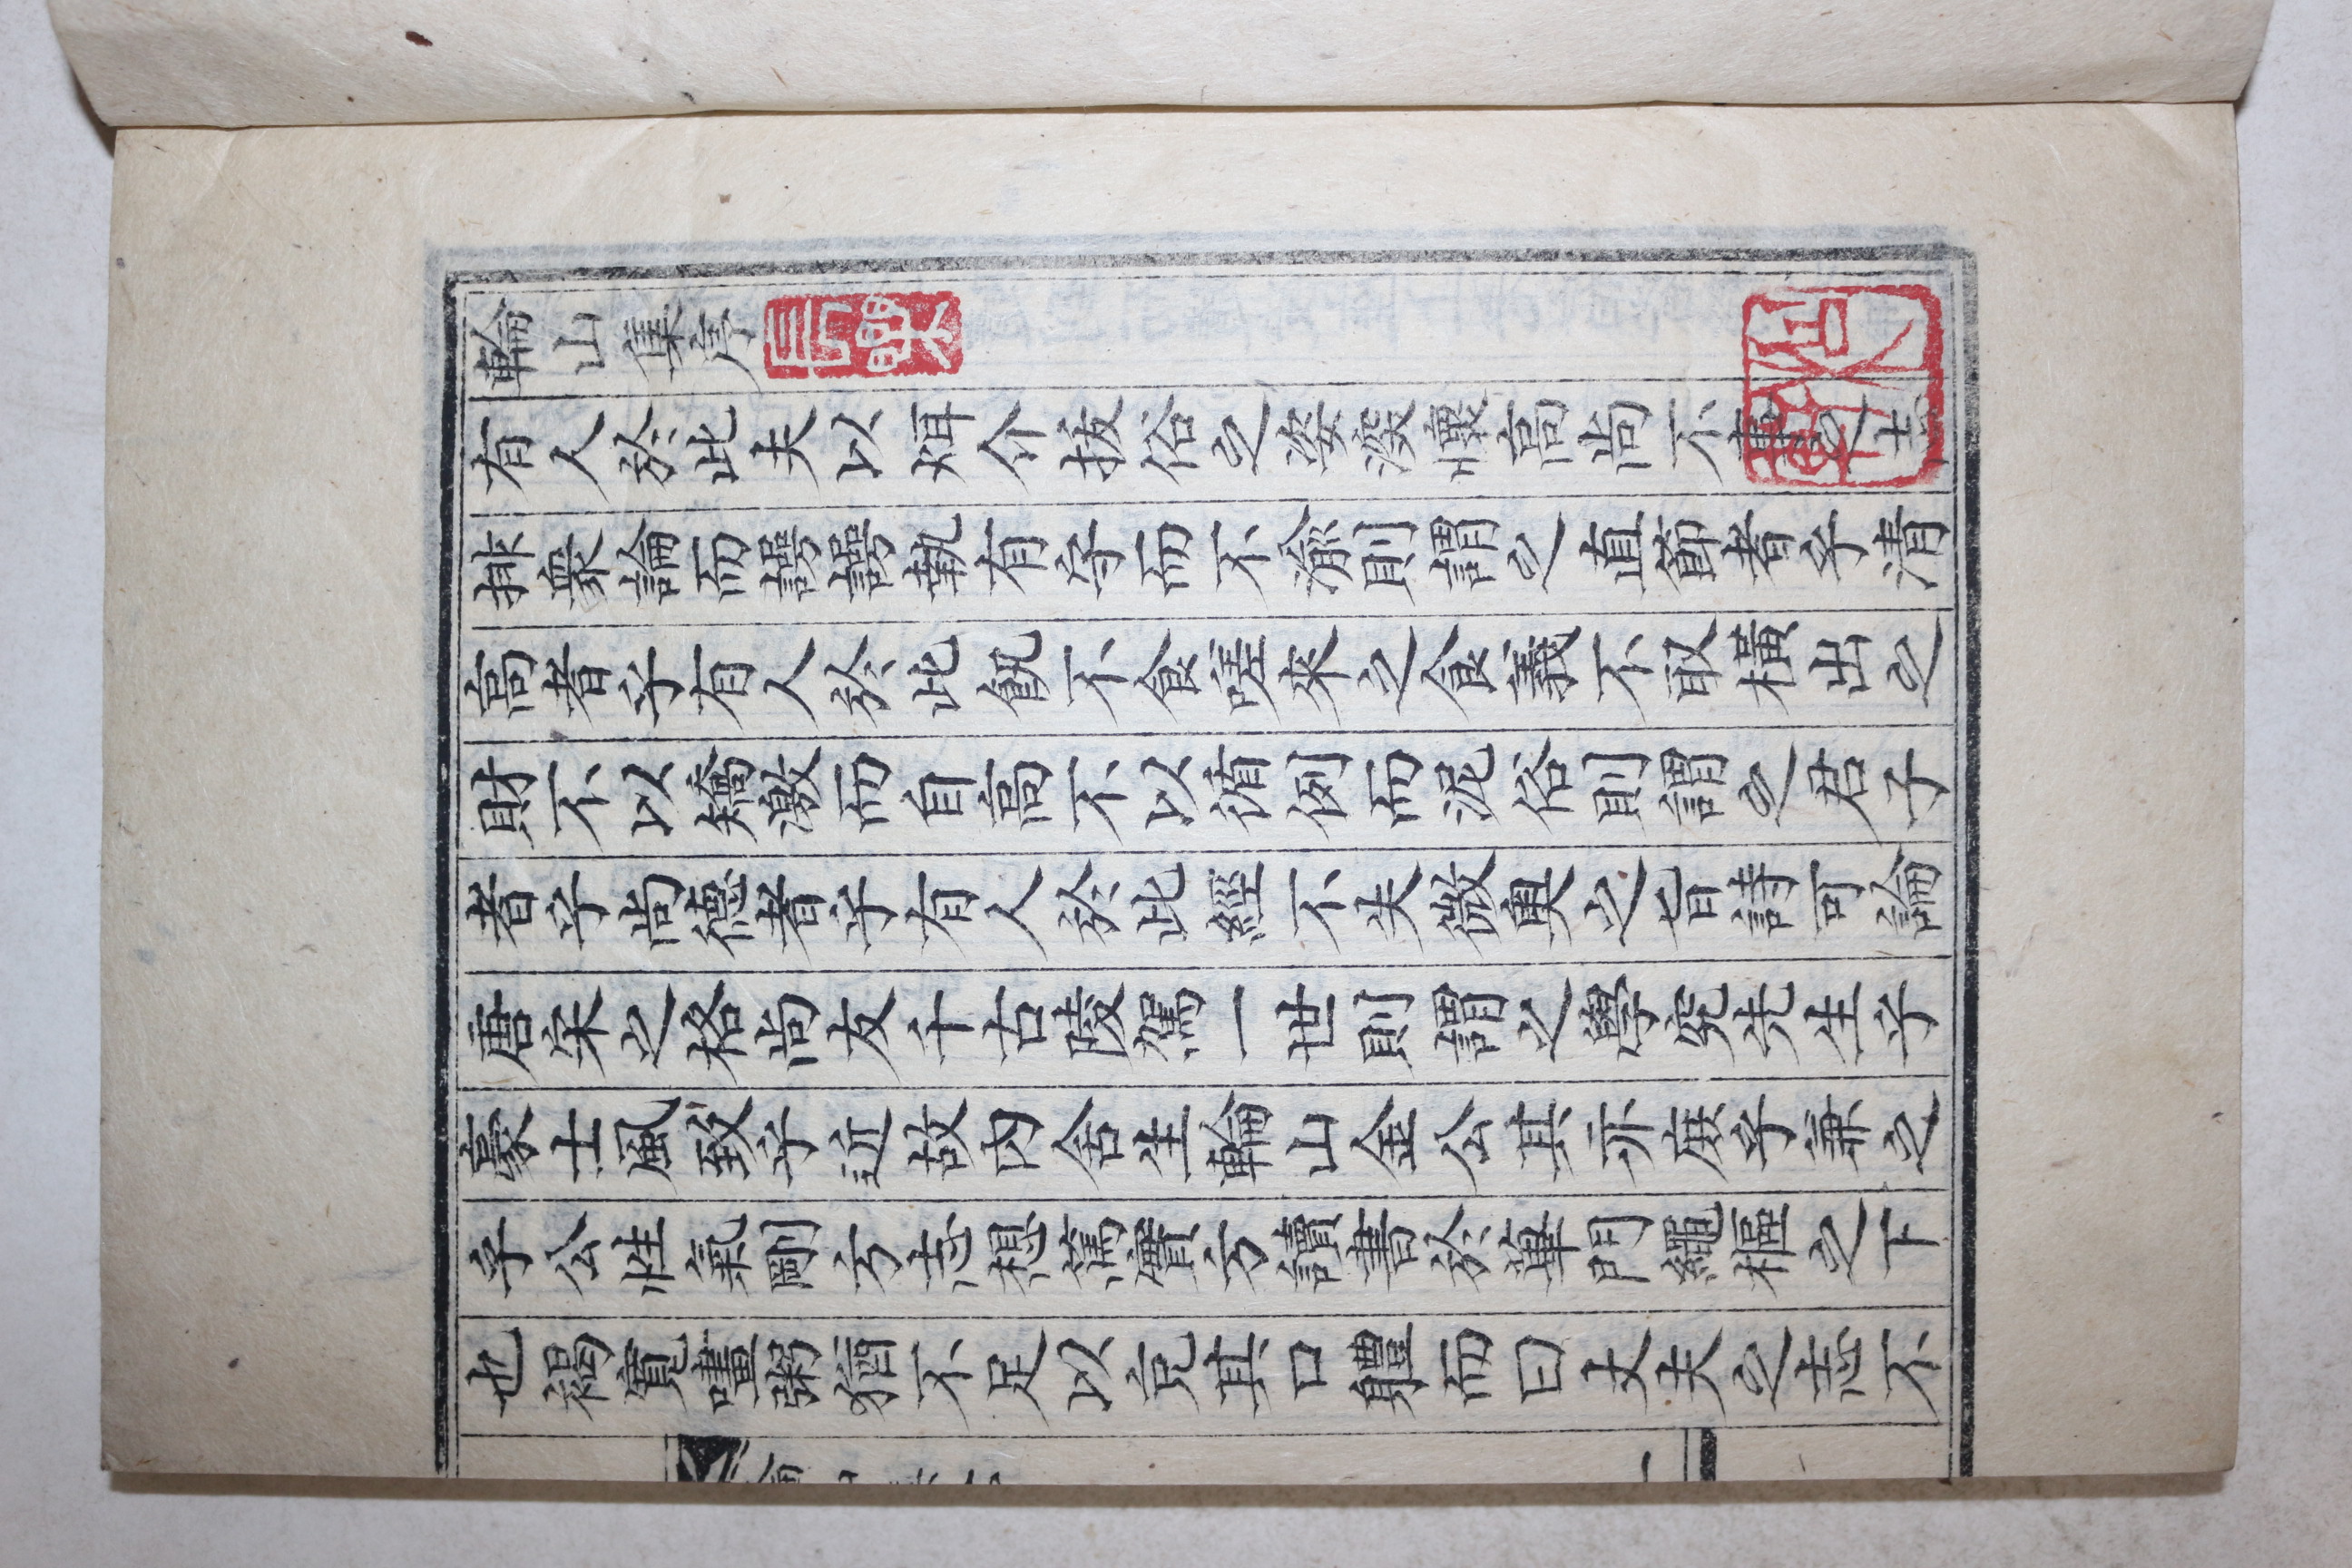 輪山集序
有人於此夫以烱介拔俗之姿深懷高尙不事之志
排衆論而諤諤執有守而不渝則謂之直節者乎淸
高者乎有人於此飢不食嗟来之食義不取橫出之
財不以矯激而自高不以循例而泥俗則謂之君子
者乎尙德者乎有人於此經不失微奧之旨詩可論
唐宋之格尙友千古陵駕一世則謂之學究先生乎
豪士風致乎近故內舍生輪山金公其亦庶乎兼之
乎公性氣剛方志想篤實方讀書於蓽門繩樞之下
也褐寬𡄸粥猶不足以充其口軆而曰丈夫之志不
輪山集序
一